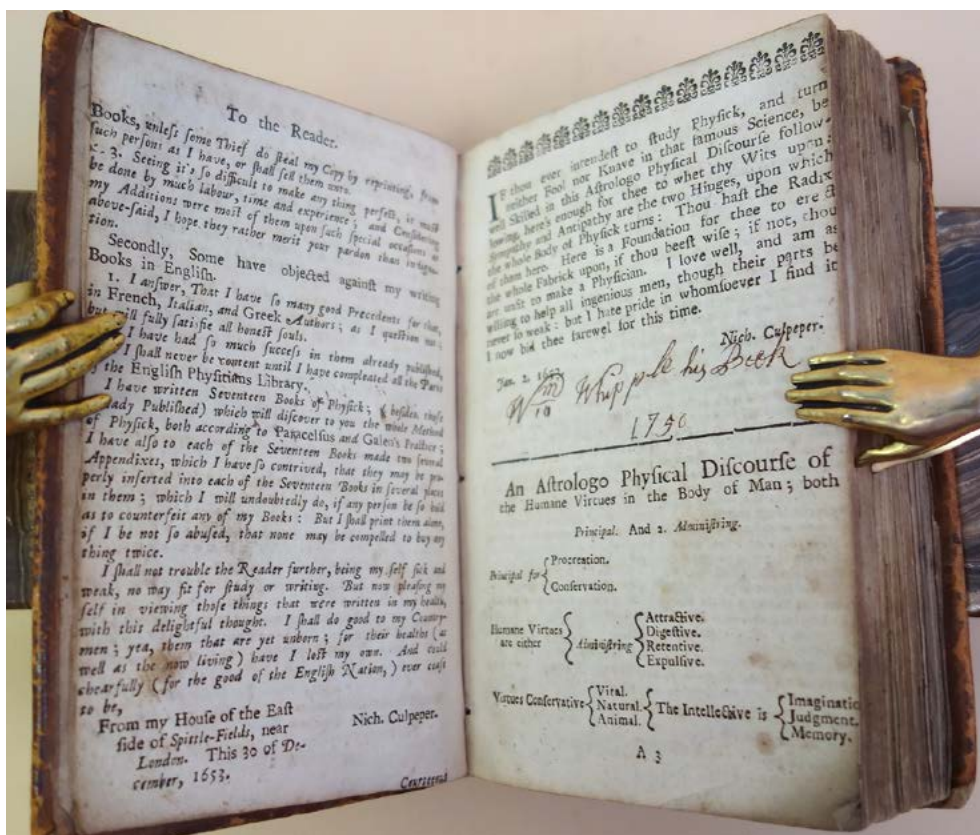 To the Reader.
Books, unleſs ſome Thief do ſteal my Copy by reprinting, from
ſuch perſons as I have, or ſhall ſell them unto.
3. Seeing it's ſo difficult to make any thing perfect, it muſt
be done by much labour, time and experience; and Conſidering
my Additions were moſt of them upon ſuch ſpecial occaſions as
above-ſaid, I hope they rather merit your pardon than indigna-
tion.
Secondly, Some have objected againſt my writing
Books in Engliſh.
1. I anſwer, That I have ſo many good Precedents for that,
in French, Italian, and Greek Authors; as I queſtion not;
but will fully ſatisfie all honeſt ſouls.
I have had ſo much ſucceſs in them already publiſhed,
I ſhall never be content until I have compleated all the Parts
of the Engliſh Phyſitians Library.
I have written Seventeen Books of Phyſick; (beſides thoſe
Publiſhed) which will diſcover to you the whole Method
of Phyſick, both according to Paracelſus and Galen's Practice;
I have alſo to each of the Seventeen Books made two ſeveral
Appendixes, which I have ſo contrived, that they may be pro-
perly inſerted into each of the Seventeen Books in ſeveral places
in them; which I will undoubtedly do, if any perſon be ſo bold
as to counterfeit any of my Books: But I ſhall print them alone,
if I be not ſo abuſed, that none may be compelled to buy any
thing twice.
I ſhall not trouble the Reader further, being my ſelf ſick and
weak, no way fit for ſtudy or writing. But now pleaſing my
ſelf in viewing thoſe things that were written in my health,
with this delightful thought. I ſhall do good to my Country-
men; yea, them that are yet unborn; for their healths (as
well as the now living) have I loſt my own. And could
chearfully (for the good of the Engliſh Nation,) ever ceaſe
to be,
Nich. Culpeper.
From my Houſe of the Eaſt
ſide of Spittle-Fields, near
London. This 30 of De-
cember, 1653.
IF thou ever intendeſt to ſtudy Phyſick, and turn
neither Fool nor Knave in that famous Science, be
well Skilled in this Aſtrologo Phyſical Diſcourſe follow-
lowing, here's enough for thee to whet thy Wits upon:
Sympathy and Antipathy are the two Hinges, upon which
the whole Body of Phyſick turns: Thou haſt the Radix
of them here. Here is a Foundation for thee to erect
the whole Fabrick upon, if thou beeſt wiſe; if not, thou
art unfit to make a Phyſician. I love well, and am as
willing to help all ingenious men, though their parts be
never ſo weak: but I hate pride in whomſoever I find it
I now bid thee farewel for this time.
Nich. Culpeper.
Jan. 2.
Wm Whipple his Book
10
1750
An Aſtrologo Phyſical Diſcourſe of
the Humane Virtues in the Body of Man; both
Principal. And 2. Adminiſtring.
Principal for { Procreation.
Conſervation.
Humane Virtues are either { Adminiſtring { Attractive.
Digeſtive.
Retentive.
Expulſive.
Virtues Conſervative { Vital.
Natural.
Animal. { The Intellective is { Imaginatio
Judgment.
Memory.
A 3